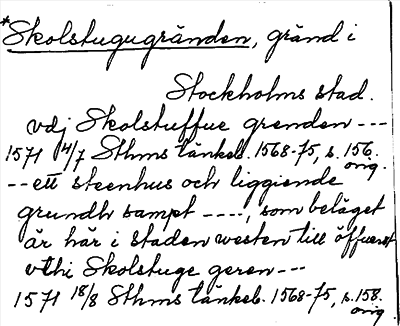 *Skolstugugränden, gränd i
Stockholms stad.
vdj Skolstuffue grenden ---
1571 4/7 Sthms tänkeb. 1568-75, s. 156. orig.
-- ett steenhus och liggiende
grundh sampt ----, som beläget
är här i staden westen till öffuerst
vthi Skolstuge geren---
1571 18/8 Sthms tänkeb. 1568-75, s. 158. orig.